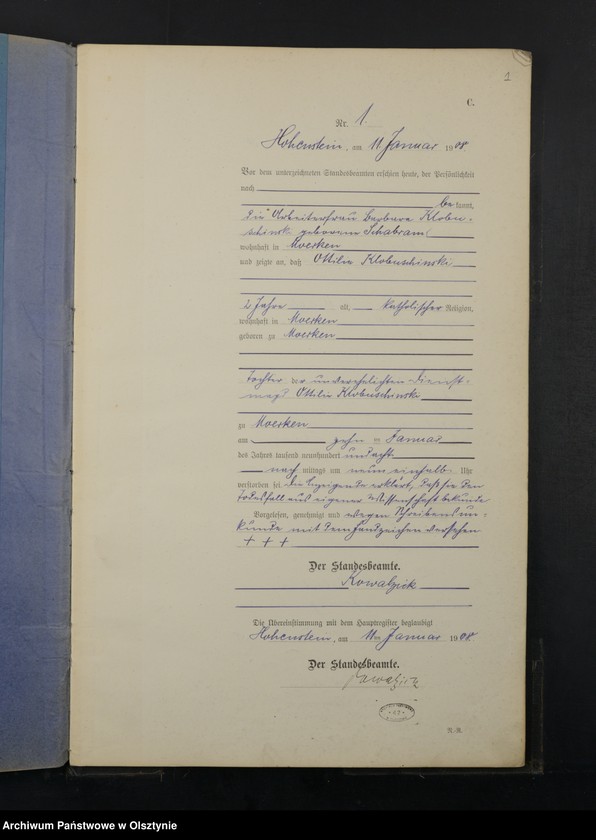 1
C.
Nr. 1.
Hohenstein, am 11. Januar 1908.
Vor dem unterzeichneten Standesbeamten erschien heute, der Persönlichkeit
nach
be kannt,
die Arbeiterfrau Barbara Klobu-
schinski geborene Schabram
wohnhaft in Moerken
und zeigte an, daß Ottilie Klobuschinski
2 Jahre alt, katholischer Religion,
wohnhaft in Moerken
geboren zu Moerken
Tochter der unverehelichten Dienst-
magd Ottilie Klobuschinski
zu Moerken
am zehn ten Januar
des Jahres tausend neunhundert und acht
nach mittags um neun einhalb Uhr
verstorben sei. Die Anzeigende erklärt, daß sie den
Todesfall aus eigener Wissenschaft bekunde
Vorgelesen, genehmigt und wegen Schreibensun-
kunde mit dem Handzeichen versehen
+ + +
Der Standesbeamte.
Kowalzick
Die Übereinstimmung mit dem Hauptregister beglaubigt
Hohenstein, am 11ten Januar 1908.
Der Standesbeamte.
Kowalzick
R.-R.
Archiwum Państwowe w Olsztynie